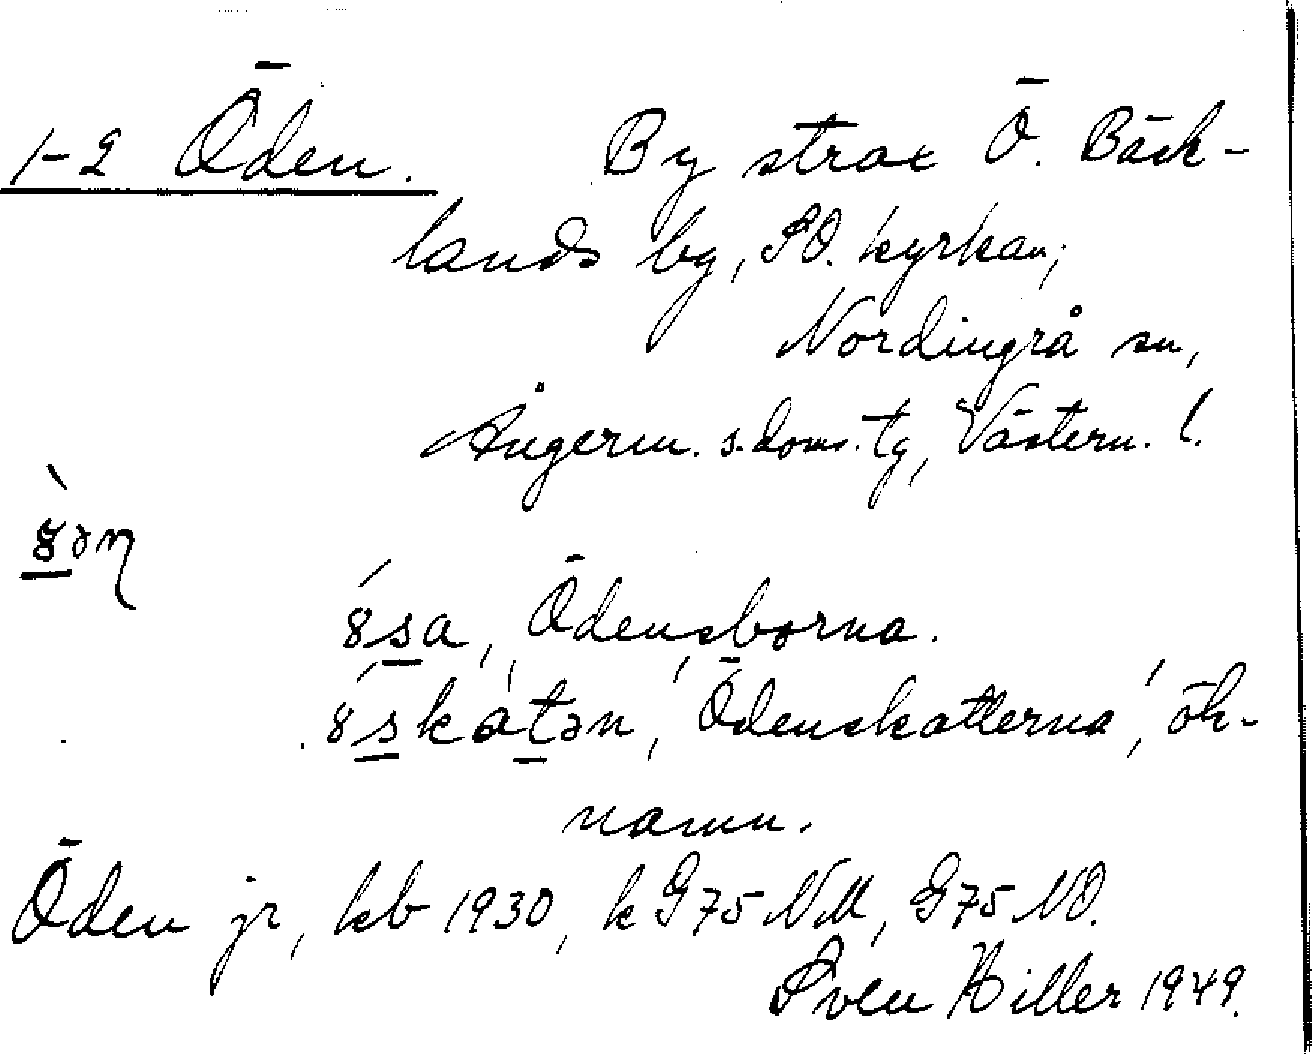 1-2 Öden. By strax Ö. Bäck-
lands by, SO. kyrkan;
Nordingrå sn,
Ångerm. s. doms. tg, Västern. l.
8sa, Ödensborna.
8skátən, 'Ödenskatterna', ök-
namn.
Öden jr, kb 1930, k G75 NV, G75 NO.
Sven Hiller 1949.